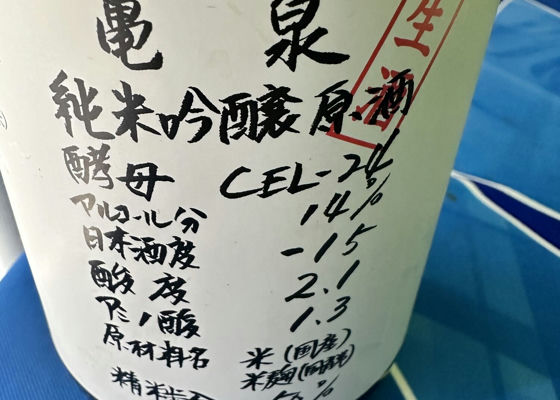 亀泉
生酒
純米吟醸原酒
酵母 CEL-24
アルコール分 14%
日本酒度 -15
酸度 2.1
アミノ酸 1.3
原材料名 米(国産)
米麹(国産米)
精米歩合